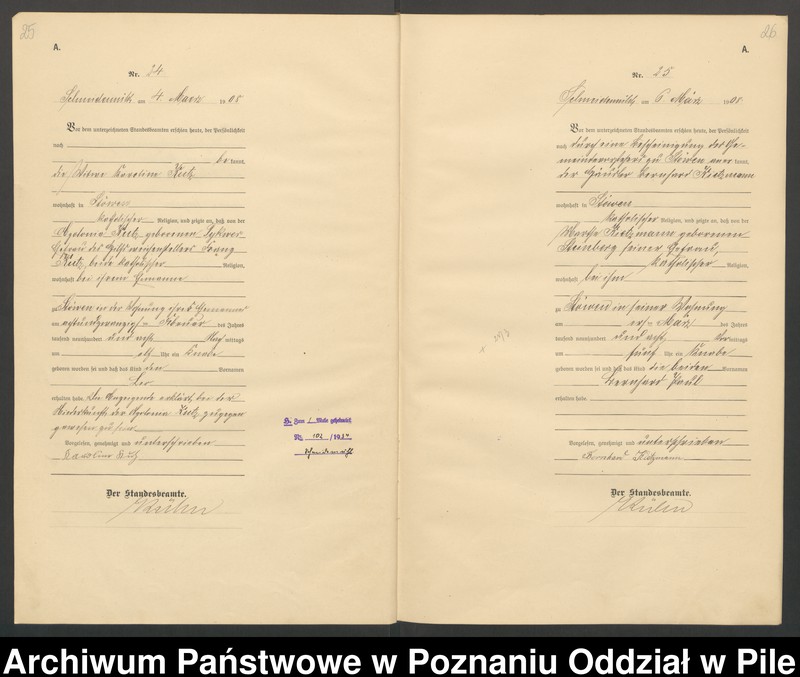 25
A.
Nr. 24
Schneidemühl am 4 März 1908
Vor dem unterzeichneten Standesbeamten erschien heute, der Persönlichkeit
nach
bekannt,
die Witwe Karoline
wohnhaft in Stöwen
katholischer Religion, und zeigte an, daß von der
geborenen
Ehefrau des Franz
beide katholischer Religion,
wohnhaft bei ihrem Ehemanne
zu Stöwen in der Wohnung ihres Ehemannes
am achtundzwanzigsten Februar des Jahres
tausend neunhundert und acht mittags
um elf Uhr ein Knabe
geboren worden sei und daß das Kind den Vornamen
Leo
erhalten habe. Die Anzeigende erklärt, bei der
Niederkunft der zugegen
gewesen zu sein
Vorgelesen, genehmigt und unterschrieben
Karoline
Der Standesbeamte.
Kühn
Zum 1 Male geheiratet
Nr. 102 /19
26
A.
Nr. 25
Schneidemühl am 6 März 1908
Vor dem unterzeichneten Standesbeamten erschien heute, der Persönlichkeit
nach durch eine Bescheinigung des Ge-
meindevorstehers zu Stöwen anerkannt,
der Häusler Bernhard Kietzmann
wohnhaft in Stöwen
katholischer Religion, und zeigte an, daß von der
Martha Kietzmann geborenen
Steinberg seiner Ehefrau,
katholischer Religion,
wohnhaft bei ihm
zu Stöwen in seiner Wohnung
am ersten März des Jahres
tausend neunhundert und acht, Vormittags
um fünf Uhr ein Knabe
geboren worden sei und daß das Kind die beiden Vornamen
Bernhard Paul
erhalten habe.
Vorgelesen, genehmigt und unterschrieben
Bernhard Kietzmann
Der Standesbeamte.
Kühn
Archiwum Państwowe w Poznaniu Oddział w Pile